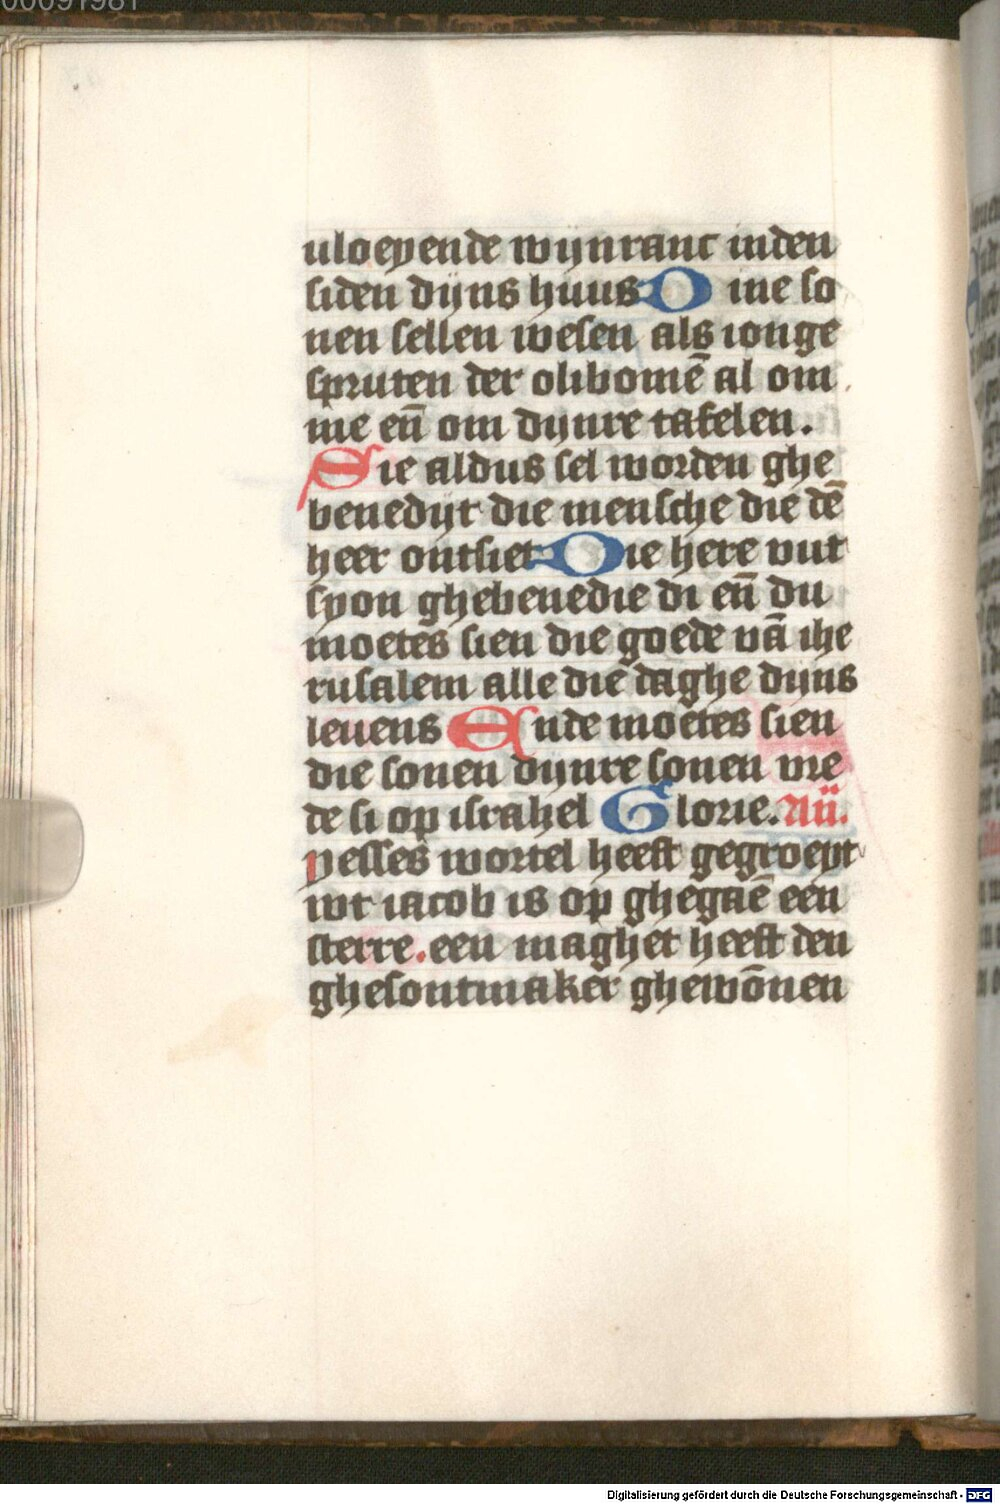 00091981
vloeyende wijnranc inden
siden dijns huus Dine so
nen sellen wesen als ionge
spruten der olibomē al om
me en̄ om dijnre tafelen.
Sie aldus sel worden ghe
benedijt die mensche die dē
heer ontsiet Die here vut
syon ghebenedie di en̄ du
moetes sien die goede vā ihe
rusalem alle die daghe dijns
leuens Ende moetes sien
die sonen dijnre sonen vre
de si op israhel Glorie. An̄.
yesses wortel heeft gegroeyt
wt iacob is op ghegaē een
sterre. een maghet heeft den
ghesontmaker ghewōnen
Digitalisierung gefördert durch die Deutsche Forschungsgemeinschaft - DFG